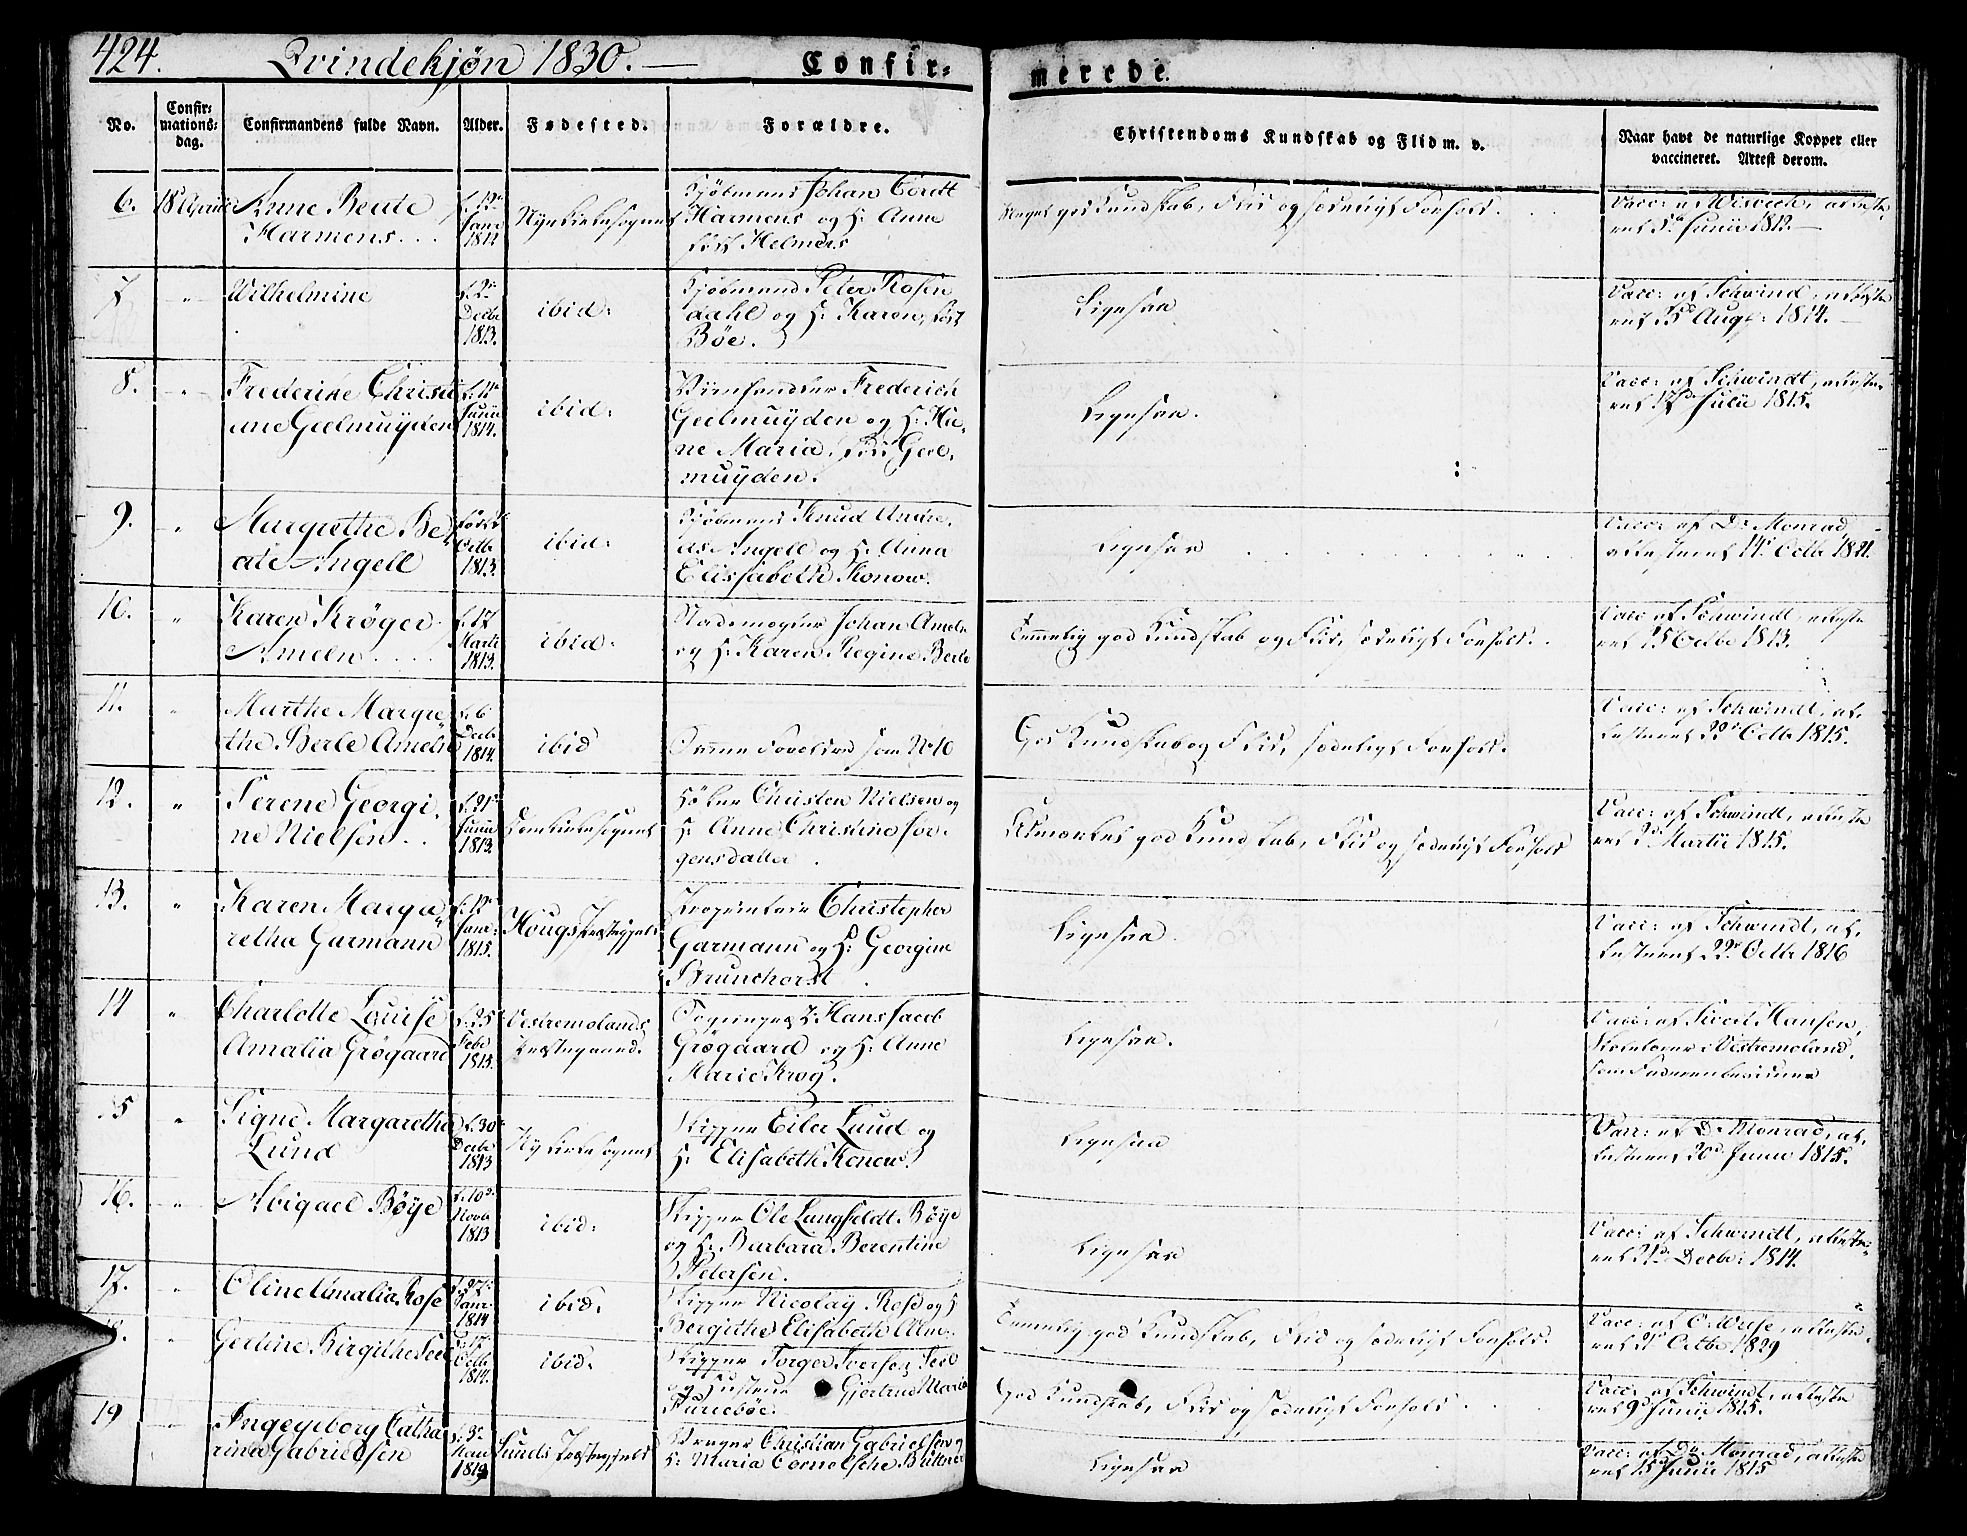 424. Qvindekjøn 1830. — Confir=
merede.
No.
Confir=
mations=
dag.
Confirmandens fulde Navn.
Alder.
Fødested.
Forældre.
Christendoms Kundskab og Flid m. v.
Naar havt de naturlige Kopper eller
vaccineret. Attest derom.
6. 18 April Anne Beate
Harmens...
f. 12
Janr
1814
Nye Kirkesognet
Kjøbmand Johan Cordt
Harmens og H: Anne
født Helmers
Meget god Kundskab, Flid og sædeligt Forhold.
Vacc: af Wisbech, atteste-
ret 5 Junii 1812. —
7. " Wilhelmine
f. 2
Decbr
1813.
ibid:
Kjøbmand Peter Rosen
dahl og H: Karen, født
Bøe.
Ligesaa
Vacc: af Schwind, atteste
ret 15 Augt: 1814. —
8. " Frederikke Christi
ane Geelmuyden
Junii
1814.
ibid:
Frederich
Geelmuyden og H: Ha-
ne Maria, født Geel-
muyden.
Ligesaa.
Vacc: af Schwindt, atteste-
ret 17 Julii 1815.
9. " Margrethe Be-
ate Angell
født
Octbr
1813.
ibid:
Kjøbmand Knud Andre-
as Angell og H: Anna
Elisabeth Konow.
Ligesaa
Vacc: af Dr Monrad
attesteret 14 Octbr 1821.
10. " Karen Krøger
Ameln....
f. 17
Marti
1813.
ibid:
Johan Ameln
og H: Karen Regine Berle
Temmelig god Kundskab og Flid, sædeligt Forhold.
Vacc: af Schwindt, atteste
ret 15 Octbr 1813.
11. " Marthe Margre-
the Berle Ameln
f. 6
Decbr
1814.
ibid
Samme Forældre som No 10
God Kundskab og Flid, sædeligt Forhold.
Vacc: af Schwindt, at-
testeret 22 Octbr 1815.
12. " Serene Georgi-
ne Nielsen...
f. 21
Junii
1813.
Domkirkesognet
Høker Christen Nielsen og
H: Anne Christine Jør-
gensdatter.
Udmærket god Kundskab, Flid og sædeligt Forhold
Vacc: af Schwindt, atteste
ret 2 Martii 1815.
13. " Karen Marga-
retha Garmann
f. 12
Janr:
1815.
Hougs Præstegjeld
Proprietair Christopher
Garmann og H: Georgine
Brunchorst.
Ligesaa.
Vacc: af Schwindt, at-
testeret 22 Octbr 1816
14 " Charlotte Louise
Amalia Grøgaard
f. 25
Febr
1815.
Vestremolands
Præstegaard.
Sogneprest Hr Hans Jacob
Grøgaard og H: Anne
Marie Krog.
Ligesaa.
Vacc: af Sivert Hansen,
Skolelærer i Vestremoland,
som Faderen bevidner
15 " Signe Margaretha
Lund
f. 30
Decbr
1813
Nykirkesognet
Skipper Eiler Lund og
H: Elisabeth Konow.
Ligesaa
Vacc: af Dr Monrad, at-
testeret 20 Junii 1815.
16. " Abigael Bøye
f. 10
Novbr
1813
ibid:
Skipper Ole Langfeldt Bøye
og H: Barbara Berentine
Petersen.
Ligesaa
Vacc: af Schwindt, atteste-
ret 21 Decbr: 1814.
17. " Oline Amalia Rose
f. 27
Janr:
1814
ibid.
Skipper Nicolay Rose og H
Bergithe Elisabeth
Temmelig god Kundskab, Flid og sædeligt Forhold.
Vacc: af O. Wese, atteste
ret 21 Octbr 1829
18. " Gertine Birgithe
f. 17
Octbr
1814.
ibid.
Skipper Torger Iversen
og Hustrue Gjertrud Maria
God Kundskab, Flid og sædeligt Forhold
Vacc: af Schwindt, atteste
ret 9 Junii 1815.
19 " Ingegeborg Catha
rina Gabrielsen
f. 3
1812
Sunds Præstegjeld
Christian Gabrielsen og
H: Maria Cornelsche Büttner
Ligesaa
Vacc: af Dr Monrad, atteste
ret 15 Junii 1815